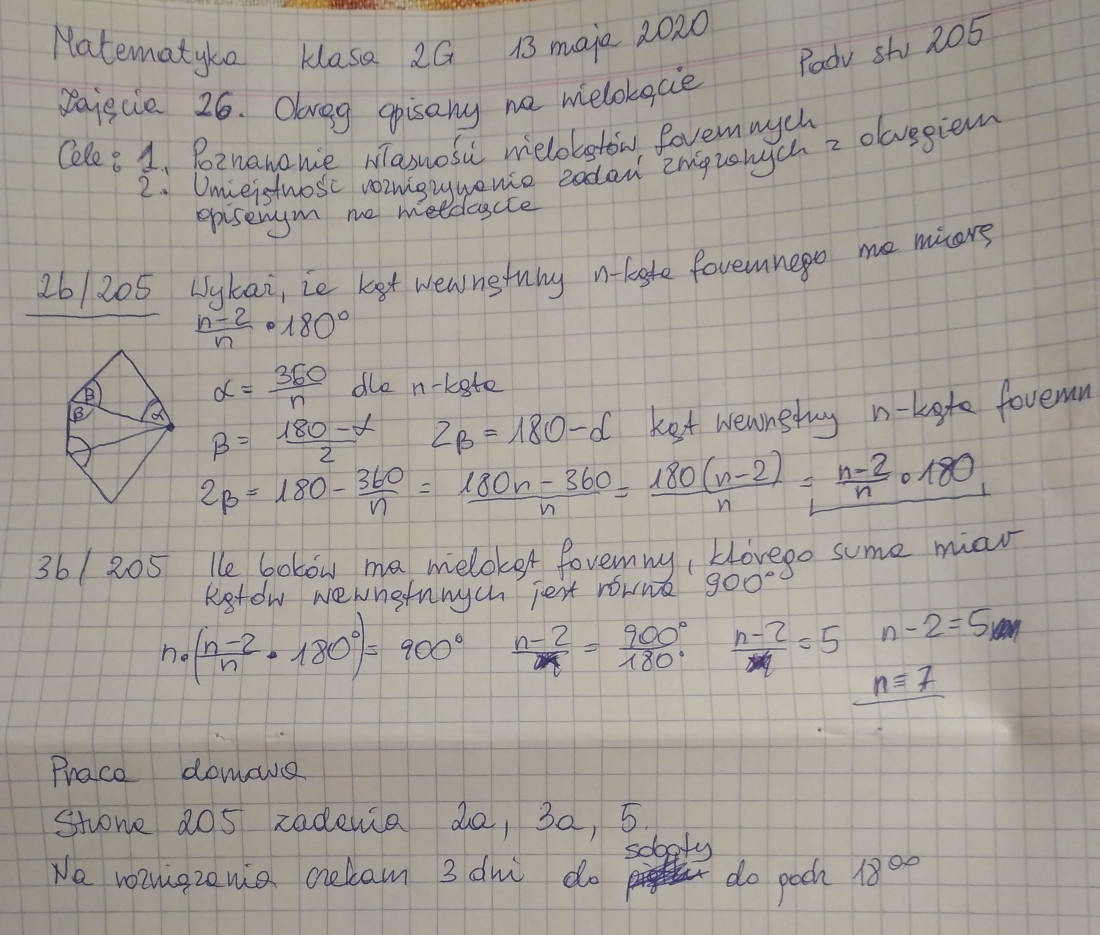 Matematyka klasa 2G 13 maja 2020
Podr str 205
Zajęcia 26. Okrąg opisany na wielokącie
Cele: 1. Poznananie własności wielokątów foremnych
2. Umiejętność rozwiązywania zadań związanych z okręgiem
opisanym na wielokącie
2b/205 Wykaż, że kąt wewnętrzny n-kąta foremnego ma miarę
n-2/n • 180°
α = 360/n dla n-kąta
β = 180-α/2 2β = 180-α kąt wewnętrzny n-kąta foremn
2β = 180 - 360/n = 180n-360/n = 180(n-2)/n = n-2/n • 180
β
β
α
3b/205 Ile boków ma wielokąt foremny, którego suma miar
kątów wewnętrznych jest równa 900°
n•(n-2/n • 180°) = 900° n-2 = 900°/180° n-2 = 5 n-2=5
n=7
Praca domowa
Strona 205 zadania 2a, 3a, 5.
Na rozwiązania czekam 3 dni do soboty do godz 18⁰⁰